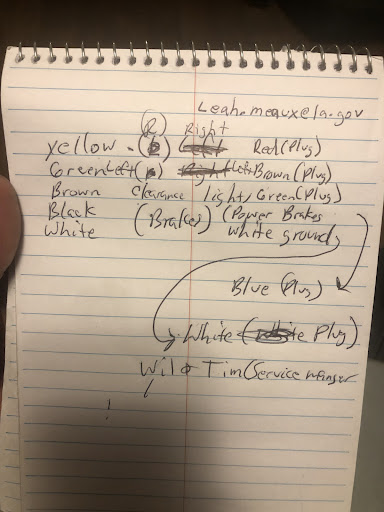 Leah.meaux@la.gov
(R) Right
yellow - Red (Plug)
Green Left ( Left Brown (Plug)
Brown clearance lights Green (Plug)
Black (Brakes) (Power Brakes
white white ground
Blue (Plug)
White ( Plug)
Tim (Service